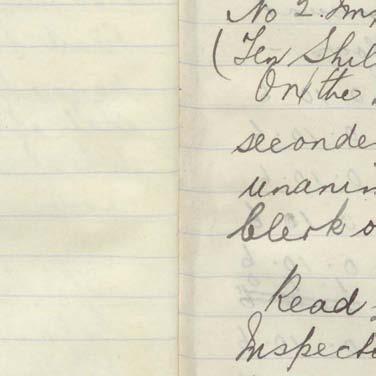 No 2. Im
(Ten Shil
On the
seconde
unanim
Clerk o
Read
Inspecto